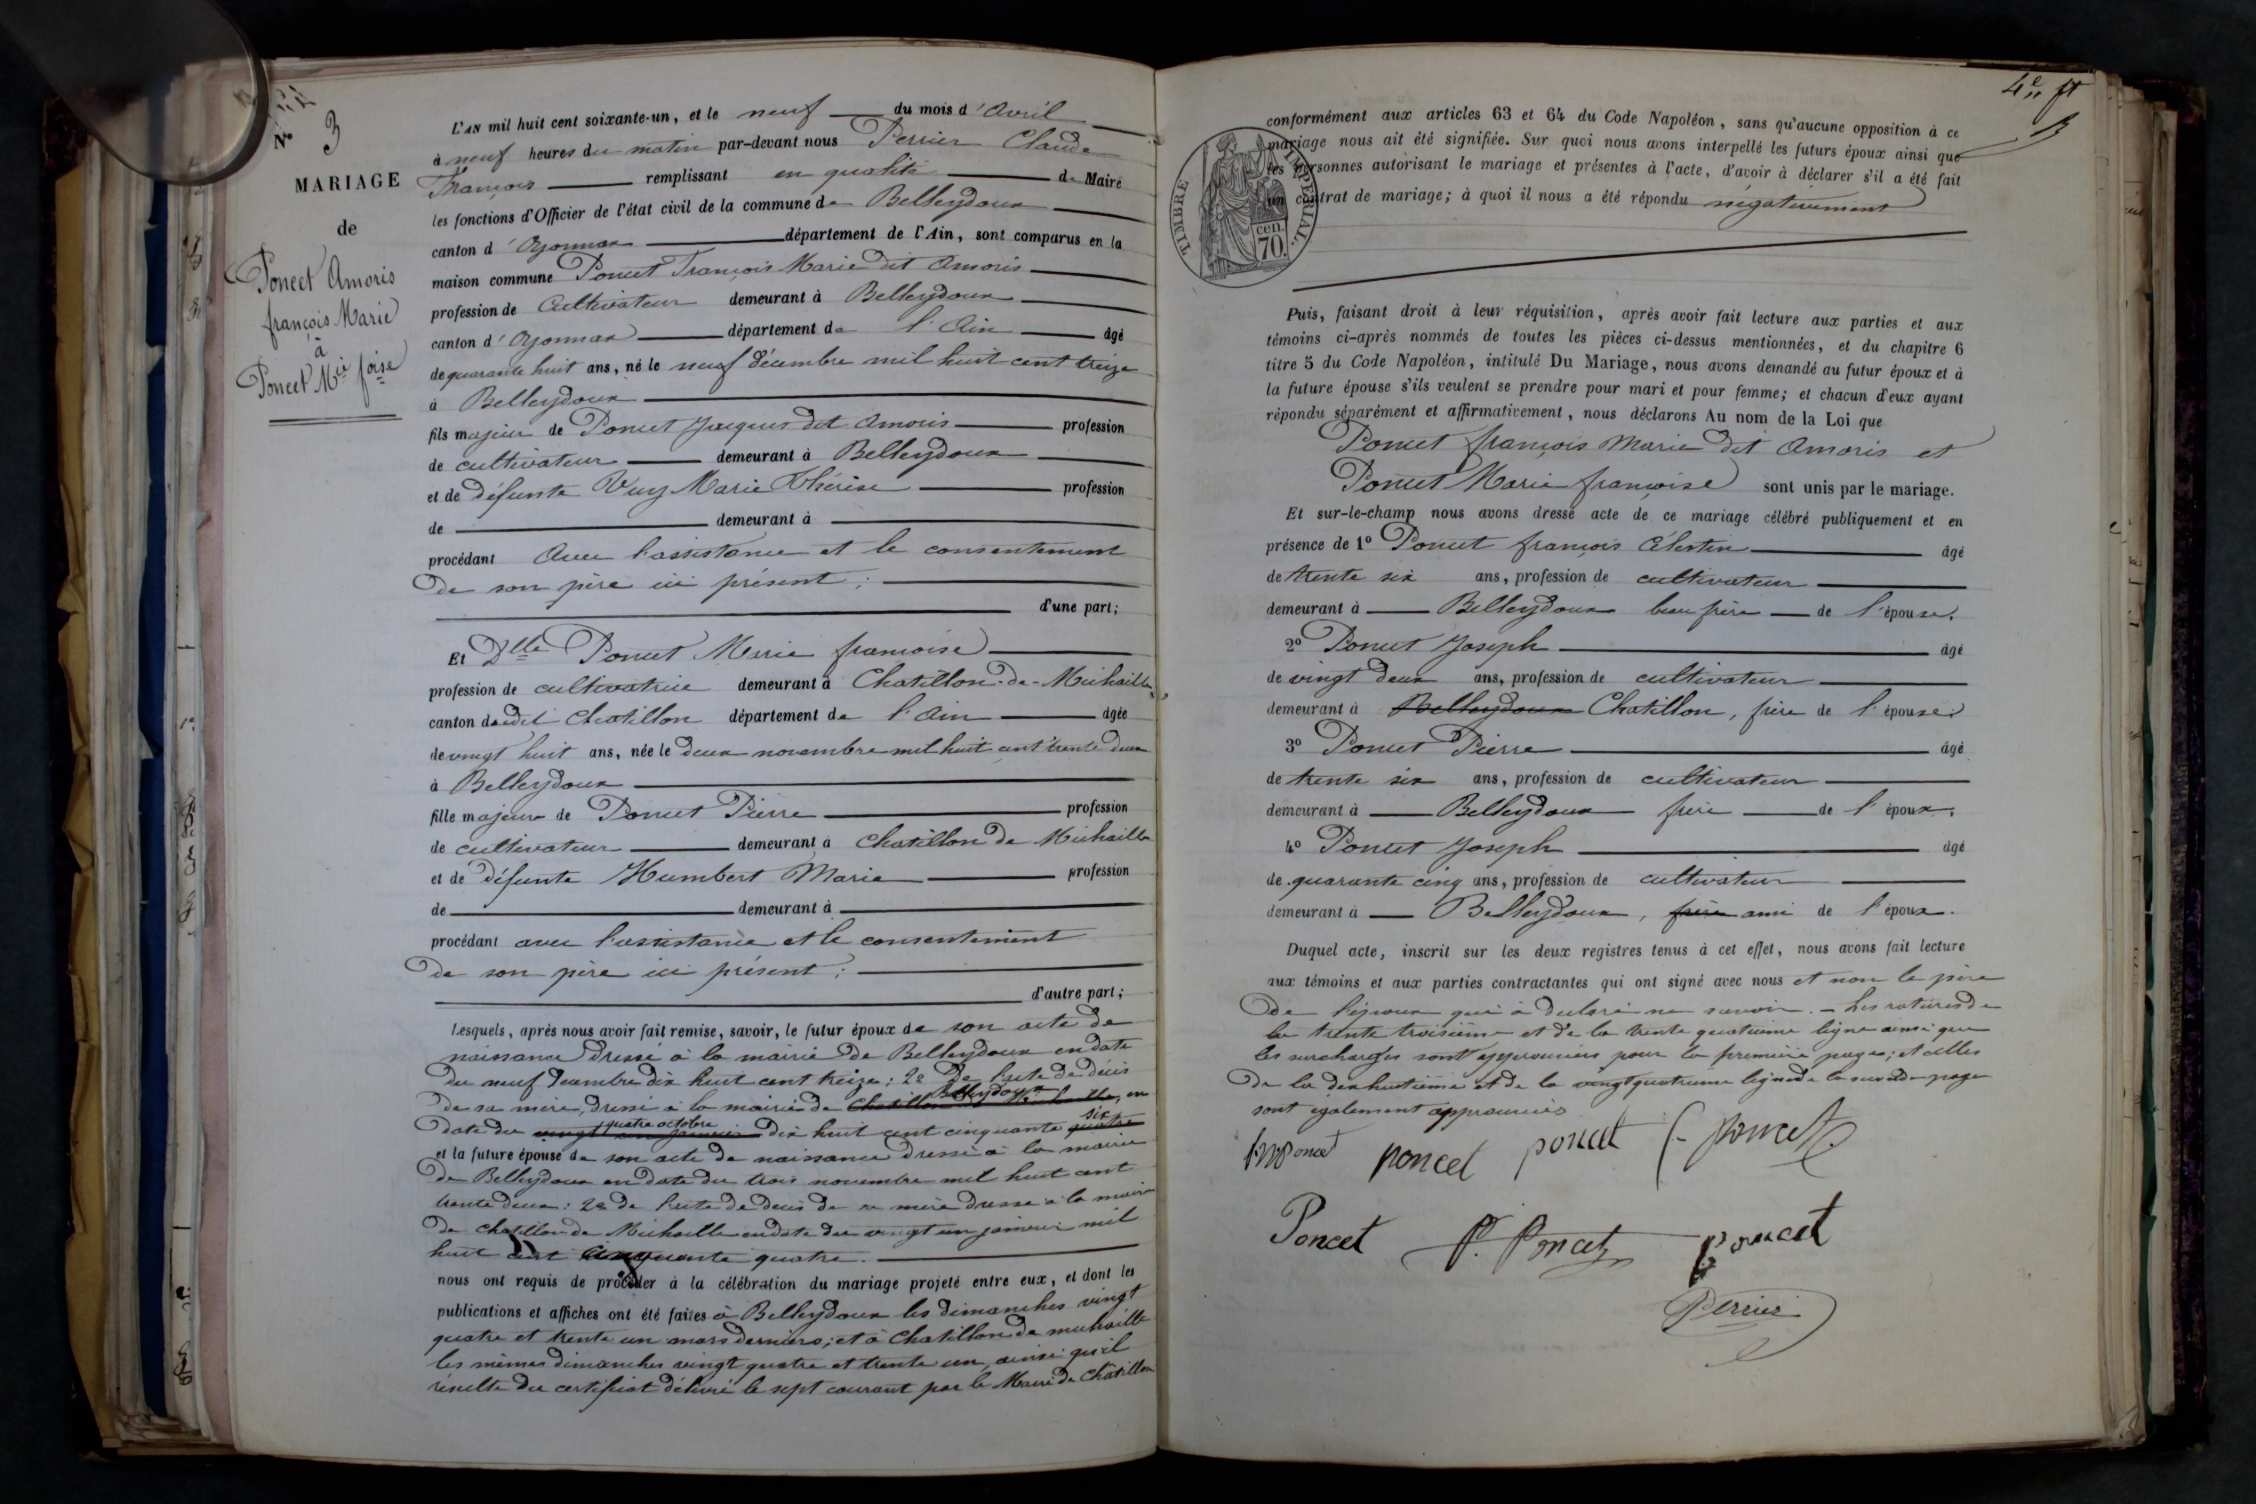 N° 3
MARIAGE
de
Poncet Amoris
françois Marie
à
Poncet Mie foise
L'AN mil huit cent soixante-un, et le neuf du mois d'Avril
à neuf heures du matin par-devant nous Perrier Claude
François remplissant en qualité de Maire
les fonctions d'Officier de l'état civil de la commune de Belleydoux
canton d'Oyonnax département de l'Ain, sont comparus en la
maison commune Poncet François Marie dit Amoris
profession de Cultivateur demeurant à Belleydoux
canton d'Oyonnax département de l'Ain âgé
de quarante huit ans, né le neuf décembre mil huit cent treize
à Belleydoux
fils majeur de Poncet Jacques dit Amoris profession
de cultivateur demeurant à Belleydoux
et de défunte Vuy Marie Thérèse profession
de demeurant à
procédant Avec l'assistance et le consentement
de son père ici présent;
d'une part;
Et Dlle Poncet Marie françoise
profession de cultivatrice demeurant à Chatillon-de-Michaille
canton dudit Chatillon département de l'Ain âgée
de vingt huit ans, née le deux novembre mil huit cent trente deux
à Belleydoux
fille majeure de Poncet Pierre profession
de cultivateur demeurant à Chatillon de Michaille
et de défunte Humbert Marie profession
de demeurant à
procédant avec l'assistance et le consentement
de son père ici présent;
d'autre part;
Lesquels, après nous avoir fait remise, savoir, le futur époux de son acte de
naissance dressé à la mairie de Belleydoux en date
du neuf décembre dix huit cent treize; 2e De l'acte de décès
de sa mère, dressé à la mairie de Belleydoux, en
date du quatre octobre dix huit cent cinquante six
et la future épouse de son acte de naissance dressé à la mairie
de Belleydoux en date du trois novembre mil huit cent
trente deux: 2e de l'acte de décès de sa mère dressé à la mairie
de Chatillon de Michaille en date du vingt un janvier mil
huit cent cinquante quatre.
nous ont requis de procéder à la célébration du mariage projeté entre eux, et dont les
publications et affiches ont été faites à Belleydoux les dimanches vingt
quatre et trente un mars derniers; et à Chatillon de michaille
les mêmes dimanches vingt quatre et trente un, ainsi qu'il
résulte du certificat délivré le sept courant par le Maire de Châtillon
4e ft
TIMBRE IMPÉRIAL.
70 cen.
conformément aux articles 63 et 64 du Code Napoléon, sans qu'aucune opposition à ce
mariage nous ait été signifiée. Sur quoi nous avons interpellé les futurs époux ainsi que
les personnes autorisant le mariage et présentes à l'acte, d'avoir à déclarer s'il a été fait
un contrat de mariage; à quoi il nous a été répondu négativement
Puis, faisant droit à leur réquisition, après avoir fait lecture aux parties et aux
témoins ci-après nommés de toutes les pièces ci-dessus mentionnées, et du chapitre 6
titre 5 du Code Napoléon, intitulé Du Mariage, nous avons demandé au futur époux et à
la future épouse s'ils veulent se prendre pour mari et pour femme; et chacun d'eux ayant
répondu séparément et affirmativement, nous déclarons Au nom de la Loi que
Poncet françois Marie dit Amoris et
Poncet Marie françoise sont unis par le mariage.
Et sur-le-champ nous avons dressé acte de ce mariage célébré publiquement et en
présence de 1° Poncet françois Célestin âgé
de trente six ans, profession de cultivateur
demeurant à Belleydoux beau frère de l'épouse.
2° Poncet Joseph âgé
de vingt deux ans, profession de cultivateur
demeurant à Belleydoux Chatillon, frère de l'épouse
3° Poncet Pierre âgé
de trente six ans, profession de cultivateur
demeurant à Belleydoux frère de l'époux;
4° Poncet Joseph âgé
de quarante cinq ans, profession de cultivateur
demeurant à Belleydoux, frère ami de l'époux.
Duquel acte, inscrit sur les deux registres tenus à cet effet, nous avons fait lecture
aux témoins et aux parties contractantes qui ont signé avec nous et non le père
de l'époux qui a déclaré ne savoir. - Les ratures de
la trente troisième et de la trente quatrième ligne ainsi que
les surcharges sont approuvées pour la première page; et celles
de la dix huitième et de la vingt quatrième ligne de la seconde page
sont également approuvées
fmponcet poncet poncet f. poncet
Poncet P. Poncet poncet
Perrier